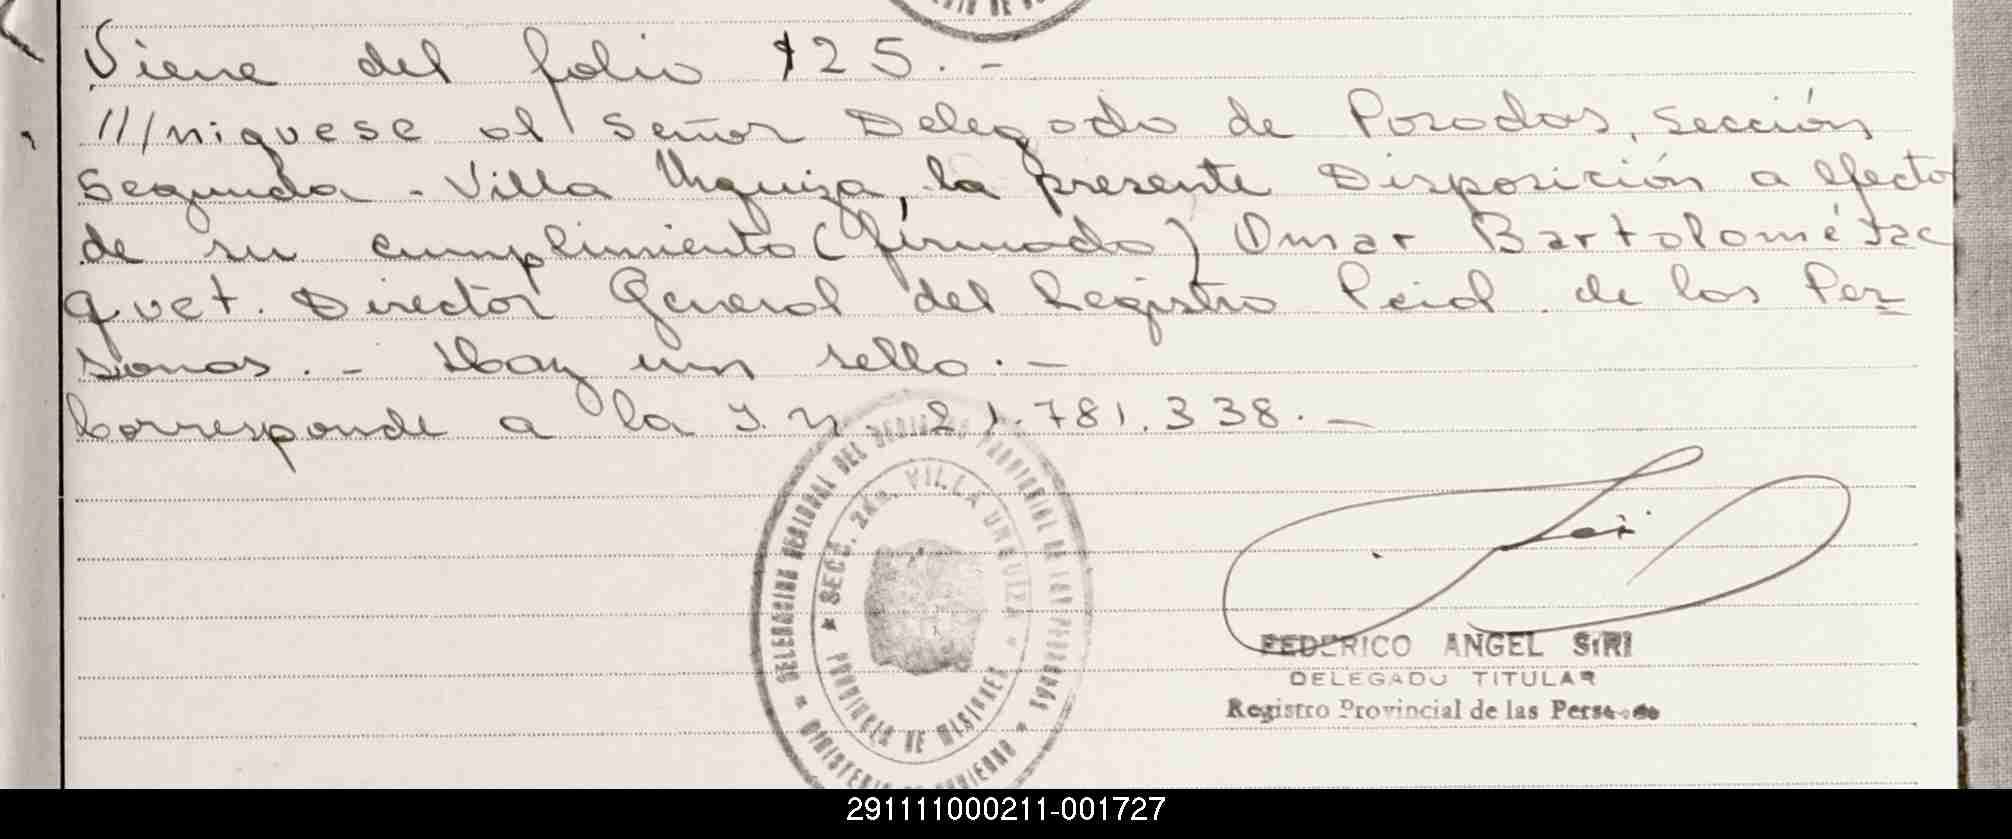 Viene del folio 125.-
///niquese al Señor Delegado de Posadas, Sección
Segunda - Villa Urquiza, la presente Disposición a efecto
de su cumplimiento (firmado) Omar Bartolomé Jac
quet. Director General del Registro Pcial. de las Per
sonas.- Hay un sello.-
Corresponde a la I.N. 21.781.338.-
DELEGACION REGIONAL DEL REGISTRO PROVINCIAL DE LAS PERSONAS
* MINISTERIO DE GOBIERNO *
* SECC. 2da. VILLA URQUIZA *
PROVINCIA DE MISIONES
FEDERICO ANGEL SIRI
DELEGADO TITULAR
Registro Provincial de las Personas
291111000211-001727